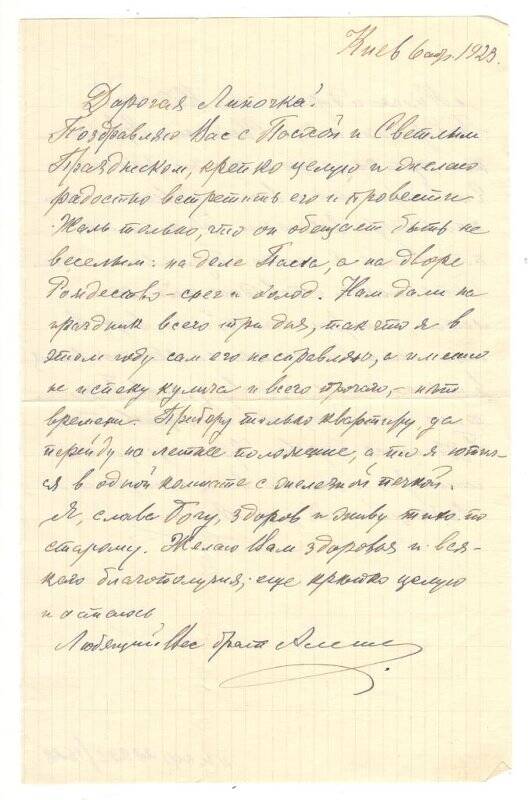 Киев 6 апр. 1923.
Дорогая Липочка!
Поздравляю Вас с Пасхой и Светлым
Праздником, крепко целую и желаю
радостно встретить его и провести.
Жаль только, что он обещает быть не
веселым: на деле Пасха, а на дворе
Рождество – снег и холод. Нам дали на
праздник всего три дня, так что я в
этом году сам его не справляю, а именно
не испеку кулича и всего прочего, – нет
времени. Приберу только квартиру, да
перейду на летнее положение, а то я ютил-
ся в одной комнате с железной печкой.
Я, слава Богу, здоров и живу тихо по
старому. Желаю Вам здоровья и вся-
кого благополучия, еще крепко целую
и остаюсь
Любящий Вас брат